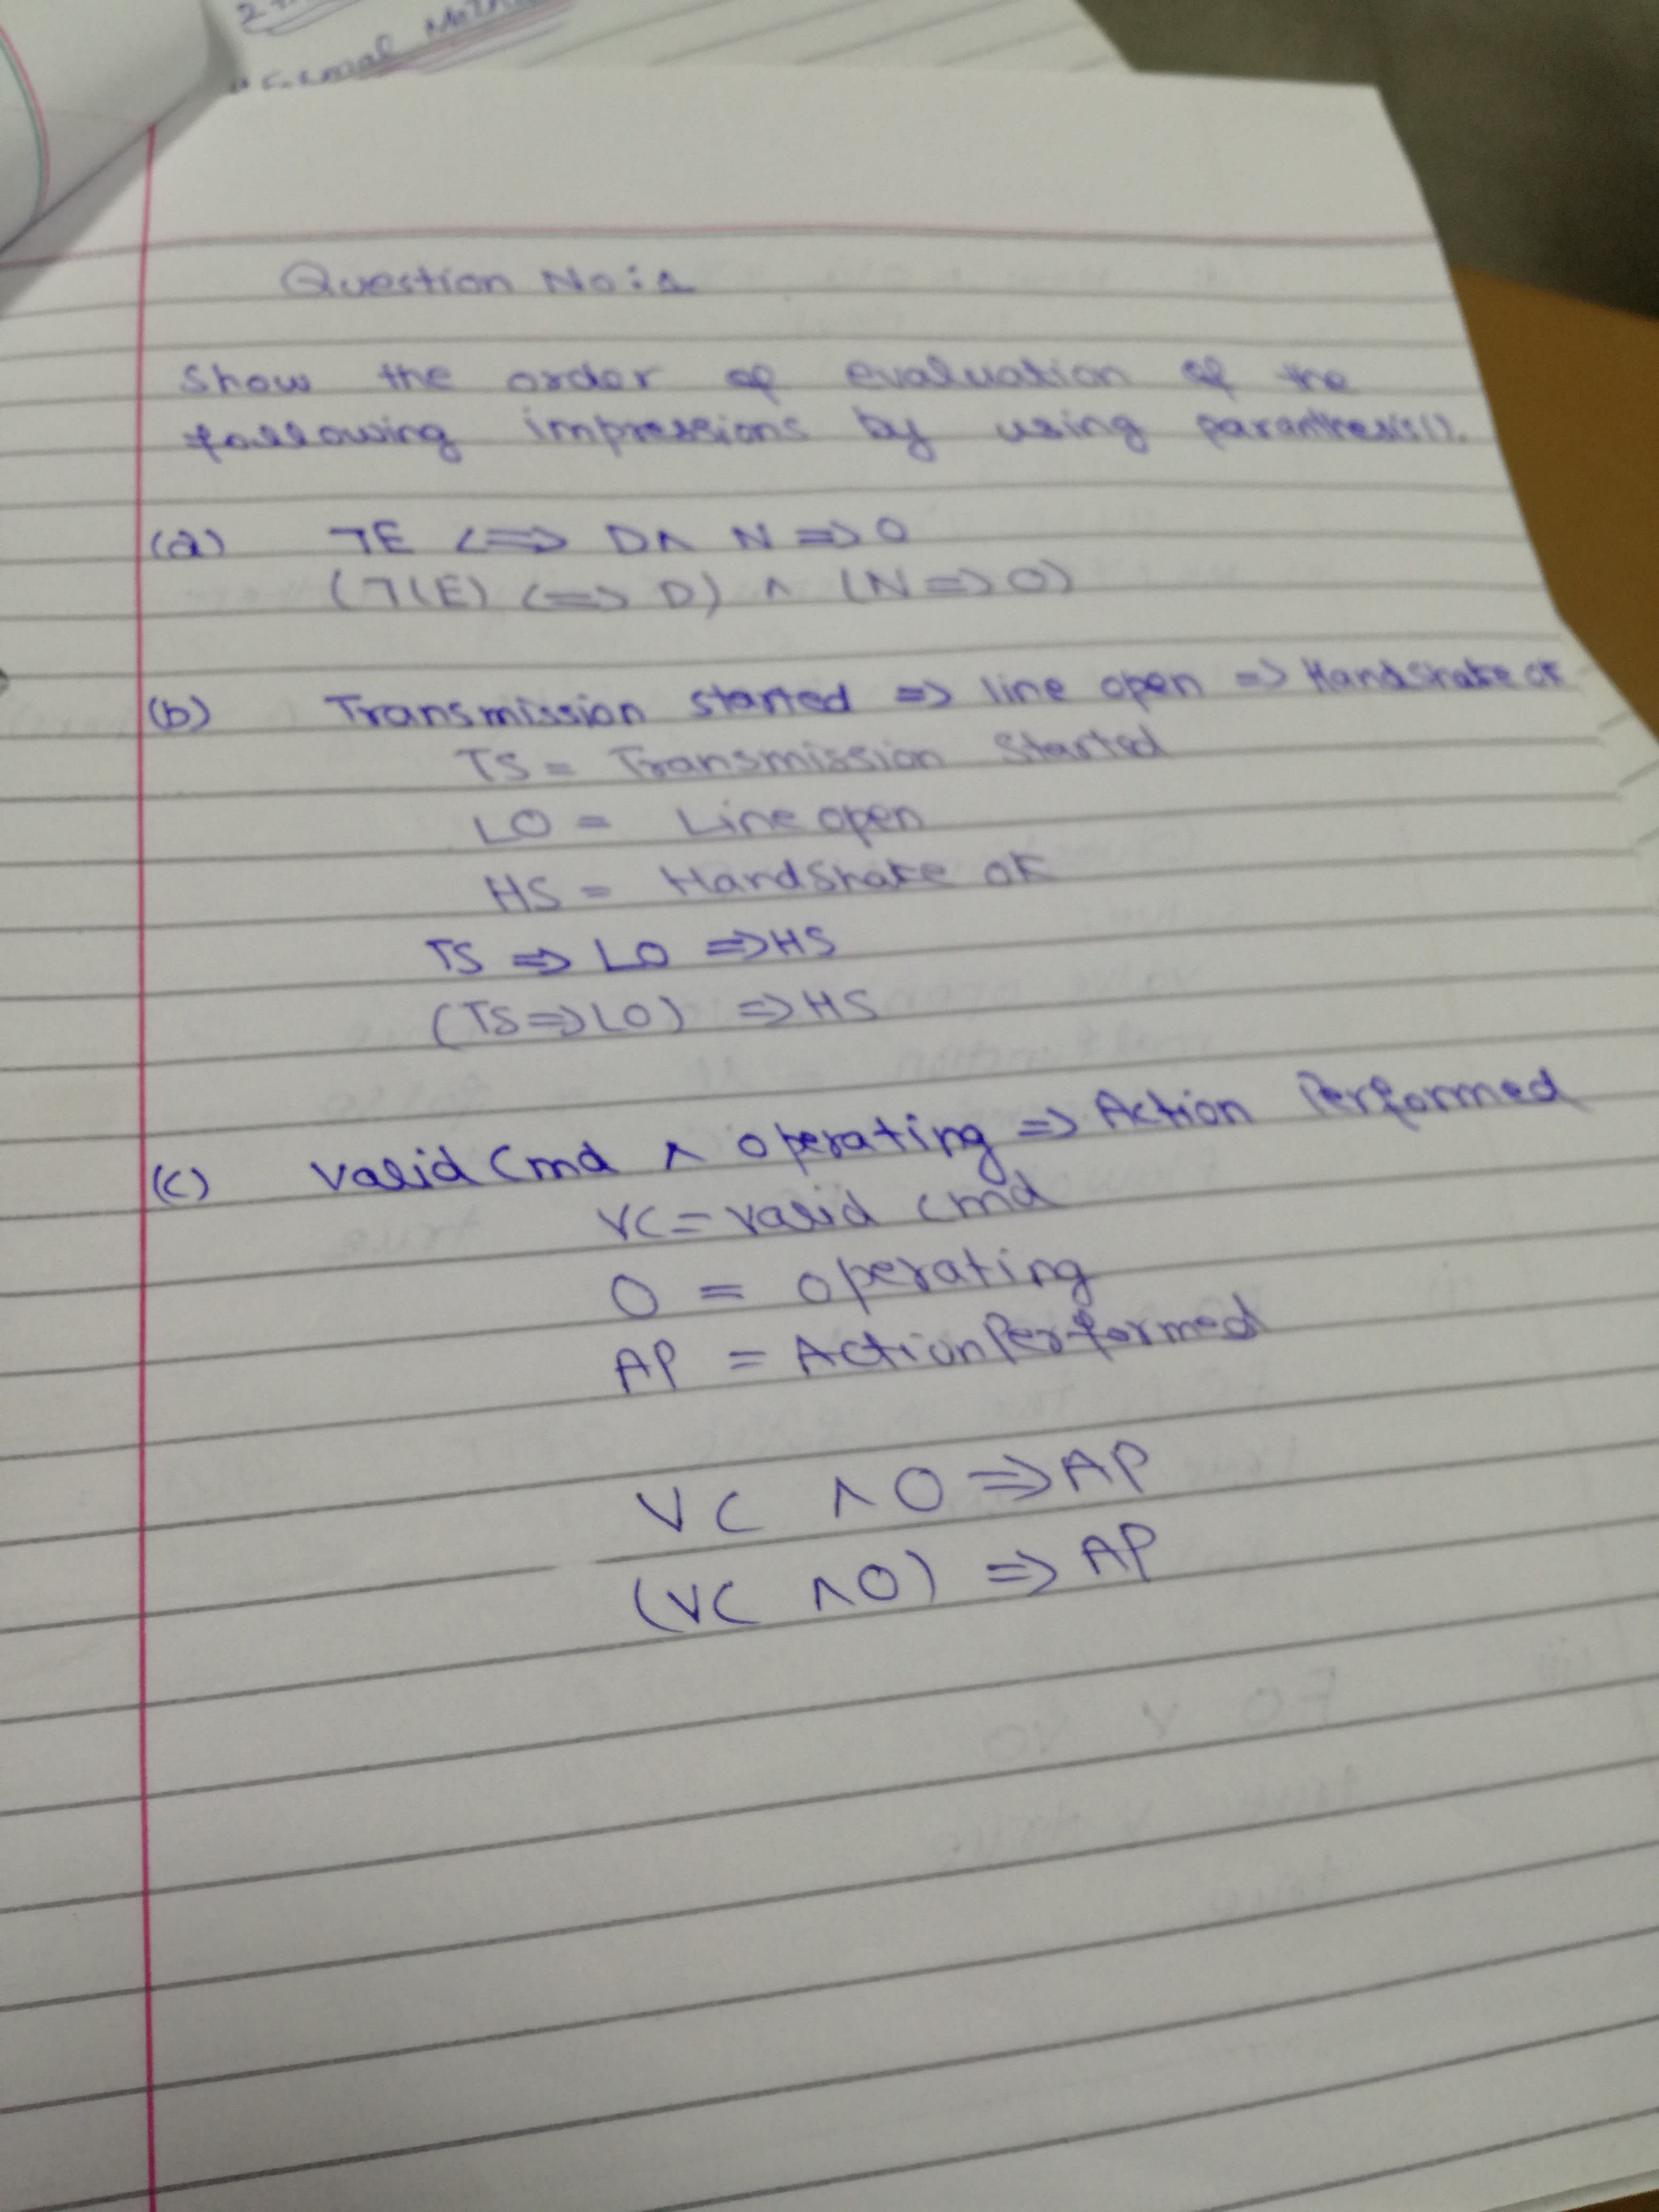 Question No:1
Show the order of evaluation of the
following impressions by using paranthesis().
(a) ¬E <=> D∧ N => O
(¬(E) <=> D) ∧ (N => O)
(b) Transmission started => line open => Handshake ok
TS = Transmission Started
LO = Line open
HS = HandShake ok
TS => LO =>HS
(TS=>LO) =>HS
(c) Valid Cmd ∧ operating => Action Performed
VC = valid cmd
O = operating
AP = ActionPerformed
VC ∧O =>AP
(VC ∧O) => AP